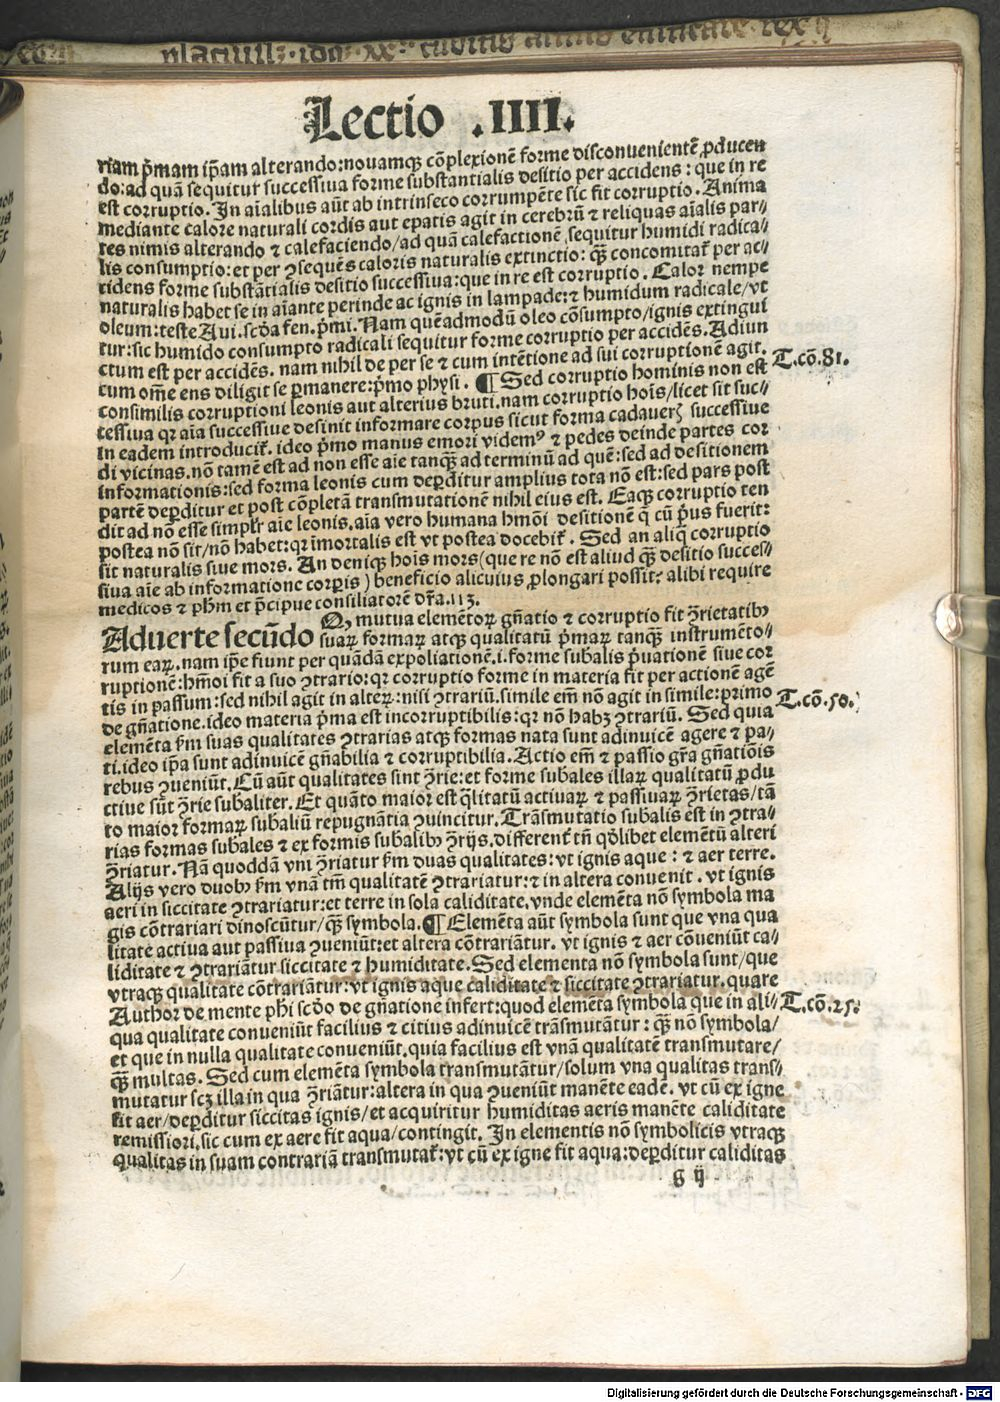 Lectio .IIII.
riam p̄mam ip̄am alterando: nouamqȝ cōplexionē forme disconuenientē ꝓducen
do: ad quā sequitur successiua forme substantialis desitio per accidens: que in re
est corruptio. In aīalibus aūt ab intrinseco corrumpēte sic fit corruptio. Anima
mediante calore naturali cordis aut epatis agit in cerebrū ⁊ reliquas aīalis par//
tes nimis alterando ⁊ calefaciendo/ad quā calefactionē sequitur humidi radica//
lis consumptio: et per ꝯsequēs caloris naturalis extinctio: qȝ̄ concomitat̄ per ac//
cidens forme substātialis desitio successiua: que in re est corruptio. Calor nempe
naturalis habet se in aīante perinde ac ignis in lampade: ⁊ humidum radicale/vt
oleum: teste Aui. scd̄a fen. p̄mi. Nam quēadmodū oleo cōsumpto/ignis extingui
tur: sic humido consumpto radicali sequitur forme corruptio per accidēs. Adiun
ctum est per accidēs. nam nihil de per se ⁊ cum intētione ad sui corruptionē agit.
cum om̄e ens diligit se ꝑmanere: p̄mo physi. ¶ Sed corruptio hominis non est
T. cō. 81.
consimilis corruptioni leonis aut alterius bruti. nam corruptio hoīs/licet sit suc//
cessiua qꝛ aīa successiue desinit informare corpus sicut forma cadaueꝝ successiue
in eadem introducit̄. ideo p̄mo manus emori videmꝰ ⁊ pedes deinde partes cor
di vicinas. nō tamē est ad non esse aīe tanqȝ̄ ad terminū ad quē: sed ad desitionem
informationis: sed forma leonis cum deꝑditur amplius tota nō est: sed pars post
partē deꝑditur et post cōpletā transmutationē nihil eius est. Eaqȝ corruptio ten
dit ad nō esse simplr̄ aīe leonis. aīa vero humana hm̄oi desitionē q̄ cū p̄us fuerit:
postea nō sit/nō habet: qꝛ īmortalis est vt postea docebit̄. Sed an aliq̄ corruptio
sit naturalis siue mors. An deniqȝ hoīs mors (que re nō est aliud qȝ̄ desitio succes//
siua aīe ab informatione corꝑis) beneficio alicuius ꝓlongari possit: alibi require
medicos ⁊ ph̄m et p̄cipue consiliatorē dr̄a. 113.
Aduerte secūdo Qꝫ mutua elemētoꝝ gn̄atio ⁊ corruptio fit ꝯ̄rietatibꝫ
suaꝝ formaꝝ atqȝ qualitatū p̄maꝝ tanqȝ̄ instrumēto//
rum eaꝝ. nam ip̄e fiunt per quādā expoliationē .i. forme subalis p̄uationē siue cor
ruptionē: hm̄oi fit a suo ꝯtrario: qꝛ corruptio forme in materia fit per actionē agē
tis in passum: sed nihil agit in alteꝝ: nisi ꝯtrariū. simile em̄ nō agit in simile: primo
T. cō. 50.
de gn̄atione. ideo materia p̄ma est incorruptibilis: qꝛ nō habȝ ꝯtrariū. Sed quia
elemēta ẜm suas qualitates ꝯtrarias atqȝ formas nata sunt adinuicē agere ⁊ pa//
ti. ideo ip̄a sunt adinuicē gn̄abilia ⁊ corruptibilia. Actio em̄ ⁊ passio gr̄a gn̄atiōis
rebus ꝯueniūt. Cū aūt qualitates sint ꝯ̄rie: et forme subales illaꝝ qualitatū ꝓdu
ctiue sūt ꝯ̄rie subaliter. Et quāto maior est q̄litatū actiuaꝝ ⁊ passiuaꝝ ꝯ̄rietas/tā
to maior formaꝝ subaliū repugnātia ꝯuincitur. Trāsmutatio subalis est in ꝯtra//
rias formas subales ⁊ ex formis subalibꝫ ꝯ̄rijs. different̄ tn̄ qd̄libet elemētū alteri
ꝯ̄riatur. Nā quoddā vni ꝯ̄riatur ẜm duas qualitates: vt ignis aque: ⁊ aer terre.
Alijs vero duobꝫ ẜm vnā tm̄ qualitatē ꝯtrariatur: ⁊ in altera conuenit. vt ignis
aeri in siccitate ꝯtrariatur: et terre in sola caliditate. vnde elemēta nō symbola ma
gis cōtrariari dinoscūtur/qȝ̄ symbola. ¶ Elemēta aūt symbola sunt que vna qua
litate actiua aut passiua ꝯueniūt: et altera cōtrariātur. vt ignis ⁊ aer cōueniūt ca//
liditate ⁊ ꝯtrariātur siccitate ⁊ humiditate. Sed elementa nō symbola sunt/que
vtraqȝ qualitate cōtrariātur: vt ignis aque caliditate ⁊ siccitate ꝯtrariatur. quare
Author de mente phī scd̄o de gn̄atione infert: quod elemēta symbola que in ali//
T. cō. 25.
qua qualitate conueniūt facilius ⁊ citius adinuicē trāsmutātur: qȝ̄ nō symbola/
et que in nulla qualitate conueniūt. quia facilius est vnā qualitatē transmutare/
qȝ̄ multas. Sed cum elemēta symbola transmutātur/solum vna qualitas trans//
mutatur scȝ illa in qua ꝯ̄riātur: altera in qua ꝯueniūt manēte eadē. vt cū ex igne
fit aer/deꝑditur siccitas ignis/et acquiritur humiditas aeris manēte caliditate
remissiori. sic cum ex aere fit aqua/contingit. In elementis nō symbolicis vtraqȝ
qualitas in suam contrariā transmutat̄: vt cū ex igne fit aqua: deꝑditur caliditas
g ij
Digitalisierung gefördert durch die Deutsche Forschungsgemeinschaft - DFG